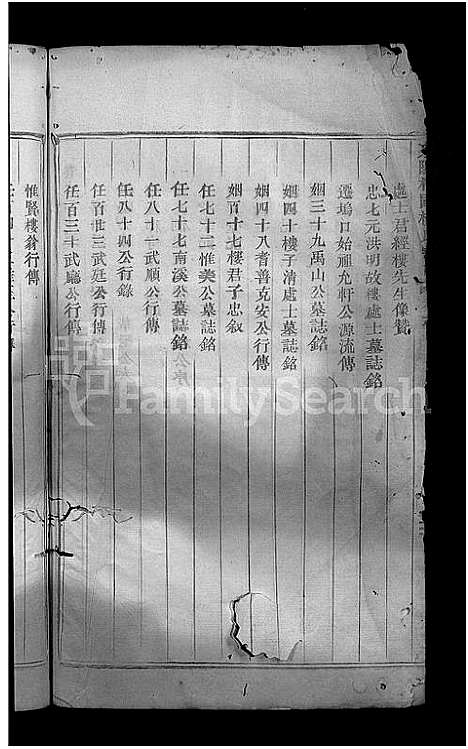 處士君經樓先生像贊
忠七元洪明故樓處士墓誌銘
遷塢口始祖允軒公源流傳
姻三十九禹山公墓誌銘
姻四十樓子清處士墓誌銘
姻四十八耆善克安公行傳
姻百十七樓君子忠敘
任七十二惟美公墓誌銘
任七十七南溪公墓誌銘
任八十一武順公行傳
任八十四公行錄
任百廿三武廷公行傳
任百三十武廳公行傳
惟賢樓翁行傳
FamilySearch